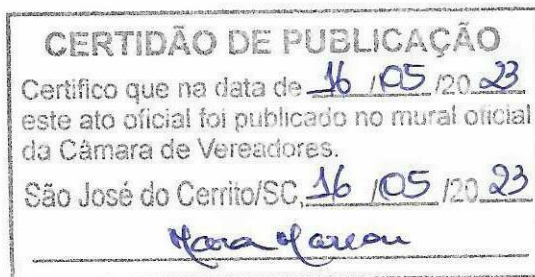 CERTIDÃO DE PUBLICAÇÃO
Certifico que na data de 16 /05 /20 23
este ato oficial foi publicado no mural oficial
da Câmara de Vereadores.
São José do Cerrito/SC, 16 /05 /20 23
Mara